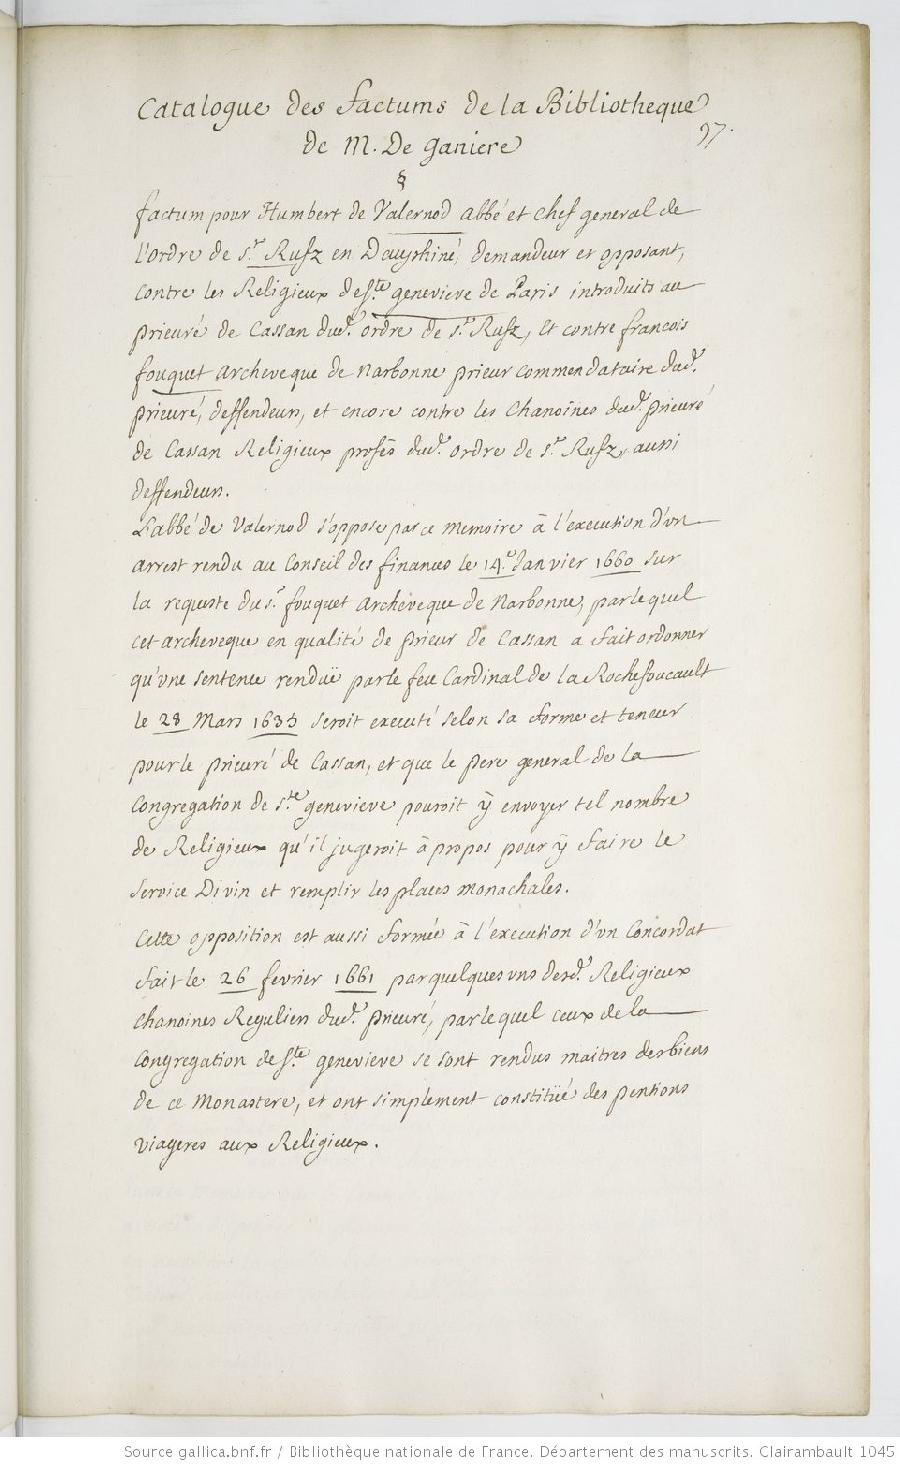 Catalogue des factums de la Bibliotheque
97.
de M. De ganiere
§
factum pour Humbert de Valernod abbé et chef general de
l'ordre de s.r Rufz en Dauphiné, demandeur et opposant,
contre les Religieux de s.te genevieve de Paris introduits au
prieuré de Cassan dud.t ordre de s.r Rufz, et contre francois
fouquet archeveque de narbonne prieur commendataire dud.t
prieuré, deffendeur, et encore contre les chanoines dud.t prieuré
de Cassan Religieux profés dud.t ordre de s.r Rufz, aussi
deffendeurs.
L'abbé de Valernod s'oppose par ce memoire à l'execution d'vn
arrest rendu au Conseil des finances le 14.e Janvier 1660 sur
la requeste du s.r fouquet archeveque de narbonne, par le quel
cet archeveque en qualité de prieur de Cassan a fait ordonner
qu'vne sentence rendüe par le feu Cardinal de la Rochefoucault
le 28 Mars 1635 seroit executé selon sa forme et teneur
pour le prieuré de Cassan, et que le pere general de la
Congregation de s.te genevieve pouroit ÿ envoyer tel nombre
de Religieux qu'il jugeroit à propos pour ÿ faire le
service Divin et remplir les places monachales.
Cette opposition est aussi formée à l'execution d'vn Concordat
fait le 26 fevrier 1661 par quelques vns desd.t Religieux
chanoines Reguliers dud.t prieuré, par le quel ceux de la
Congregation de s.te genevieve se sont rendus maitres des biens
de ce Monastere, et ont simplement constitüé des pentions
viageres aux Religieux.
Source gallica.bnf.fr / Bibliothèque nationale de France. Département des manuscrits. Clairambault 1045